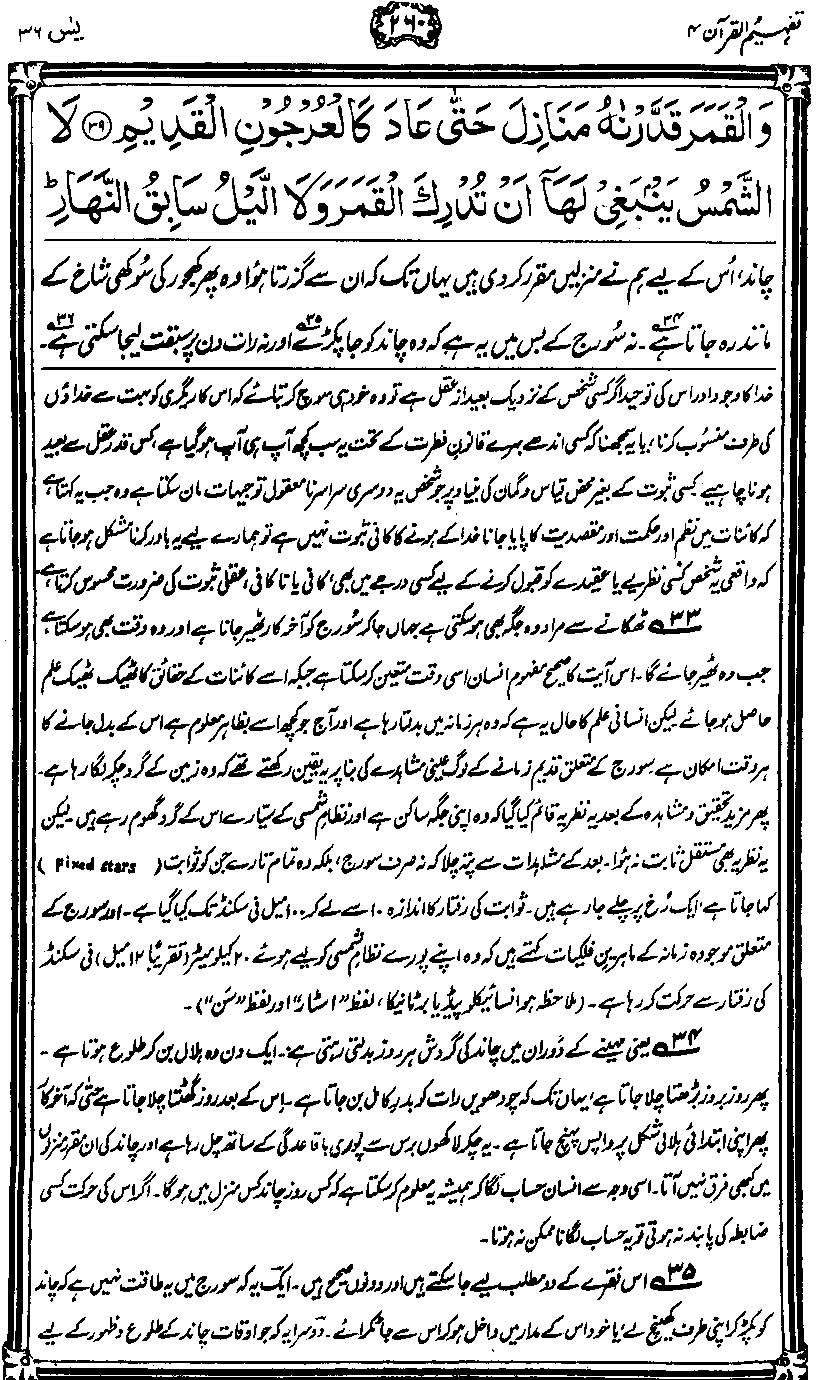 تفہیم القرآن ۴
۲۶۰
یٰس ۳۶
وَالْقَمَرَ قَدَّرْنٰهُ مَنَازِلَ حَتّٰى عَادَ كَالْعُرْجُوْنِ الْقَدِيْمِ ﴿۳۹﴾ لَا
الشَّمْسُ يَنْۢبَغِيْ لَهَآ اَنْ تُدْرِكَ الْقَمَرَ وَلَا الَّيْلُ سَابِقُ النَّهَارِ ؕ
چاند، اُس کے لیے ہم نے منزلیں مقرر کر دی ہیں یہاں تک کہ ان سے گزرتا ہوا وہ پھر کھجور کی سُوکھی شاخ کے
مانند رہ جاتا ہے۳۴۔ نہ سُورج کے بس میں یہ ہے کہ وہ چاند کو جا پکڑے۳۵ اور نہ رات دن پر سبقت لے جا سکتی ہے۳۶۔
خدا کا وجود اور اس کی توحید اگر کسی شخص کے نزدیک بعید از عقل ہے تو وہ خود ہی سوچ کر بتائے کہ اس کاریگری کو بہت سے خداؤں
کی طرف منسُوب کرنا، یا یہ سمجھنا کہ کسی اندھے بہرے قانونِ فطرت کے تحت یہ سب کچھ آپ ہی آپ ہو گیا ہے، کس قدر عقل سے بعید
ہونا چاہیے۔ کسی ثبوت کے بغیر محض قیاس و گمان کی بنیاد پر جو شخص یہ دوسری سراسر نامعقول توجیہات مان سکتا ہے وہ جب یہ کہتا ہے
کہ کائنات میں نظم اور حکمت اور مقصدیت کا پایا جانا خدا کے ہونے کا کافی ثبوت نہیں ہے تو ہمارے لیے یہ باور کرنا مشکل ہو جاتا ہے
کہ واقعی یہ شخص کسی نظریے یا عقیدے کو قبول کرنے کے لیے کسی درجے میں بھی، کافی یا ناکافی، عقلی ثبوت کی ضرورت محسوس کرتا ہے۔
۳۳ ٹھکانے سے مراد وہ جگہ بھی ہو سکتی ہے جہاں جا کر سُورج کو آخر کار ٹھیر جانا ہے اور وہ وقت بھی ہو سکتا ہے
جب وہ ٹھیر جائے گا۔ اس آیت کا صحیح مفہوم انسان اسی وقت متعین کر سکتا ہے جبکہ اسے کائنات کے حقائق کا ٹھیک ٹھیک علم
حاصل ہو جائے لیکن انسانی علم کا حال یہ ہے کہ وہ ہر زمانہ میں بدلتا رہا ہے اور آج جو کچھ اسے بظاہر معلوم ہے اس کے بدل جانے کا
ہر وقت امکان ہے۔ سورج کے متعلق قدیم زمانے کے لوگ عینی مشاہدے کی بنا پر یہ یقین رکھتے تھے کہ وہ زمین کے گرد چکر لگا رہا ہے۔
پھر مزید تحقیق و مشاہدہ کے بعد یہ نظریہ قائم کیا گیا کہ وہ اپنی جگہ ساکن ہے اور نظامِ شمسی کے سیّارے اس کے گرد گھوم رہے ہیں۔ لیکن
یہ نظریہ بھی مستقل ثابت نہ ہوا۔ بعد کے مشاہدات سے پتہ چلا کہ نہ صرف سورج، بلکہ وہ تمام تارے جن کو ثوابت (Fixed stars)
کہا جاتا ہے، ایک رُخ پر چلے جا رہے ہیں۔ ثوابت کی رفتار کا اندازہ ۱۰ سے لے کر ۱۰۰ میل فی سکنڈ تک کیا گیا ہے۔ اور سورج کے
متعلق موجودہ زمانہ کے ماہرینِ فلکیات کہتے ہیں کہ وہ اپنے پورے نظامِ شمسی کو لیے ہوئے ۲۰ کیلو میٹر (تقریبًا ۱۲ میل) فی سکنڈ
کی رفتار سے حرکت کر رہا ہے۔ (ملاحظہ ہو انسائیکلو پیڈیا برٹانیکا، لفظ "اسٹار" اور لفظ "سَن")۔
۳۴ یعنی مہینے کے دوران میں چاند کی گردش ہر روز بدلتی رہتی ہے۔ ایک دن وہ ہلال بن کر طلوع ہوتا ہے۔
پھر روز بروز بڑھتا چلا جاتا ہے، یہاں تک کہ چودھویں رات کو بدرِ کامل بن جاتا ہے۔ اس کے بعد روز گھٹتا چلا جاتا ہے حتٰی کہ آخرکار
پھر اپنی ابتدائی ہلالی شکل پر واپس پہنچ جاتا ہے۔ یہ چکر لاکھوں برس سے پوری باقاعدگی کے ساتھ چل رہا ہے اور چاند کی ان مقرر منزلوں
میں کبھی فرق نہیں آتا۔ اسی وجہ سے انسان حساب لگا کر ہمیشہ یہ معلوم کر سکتا ہے کہ کس روز چاند کس منزل میں ہوگا۔ اگر اس کی حرکت کسی
ضابطہ کی پابند نہ ہوتی تو یہ حساب لگانا ممکن نہ ہوتا۔
۳۵ اس فقرے کے دو مطلب لیے جا سکتے ہیں اور دونوں صحیح ہیں۔ ایک یہ کہ سورج میں یہ طاقت نہیں ہے کہ چاند
کو پکڑ کر اپنی طرف کھینچ لے، یا خود اس کے مدار میں داخل ہو کر اس سے جا ٹکرائے۔ دوسرا یہ کہ جو اوقات چاند کے طلوع و ظہور کے لیے